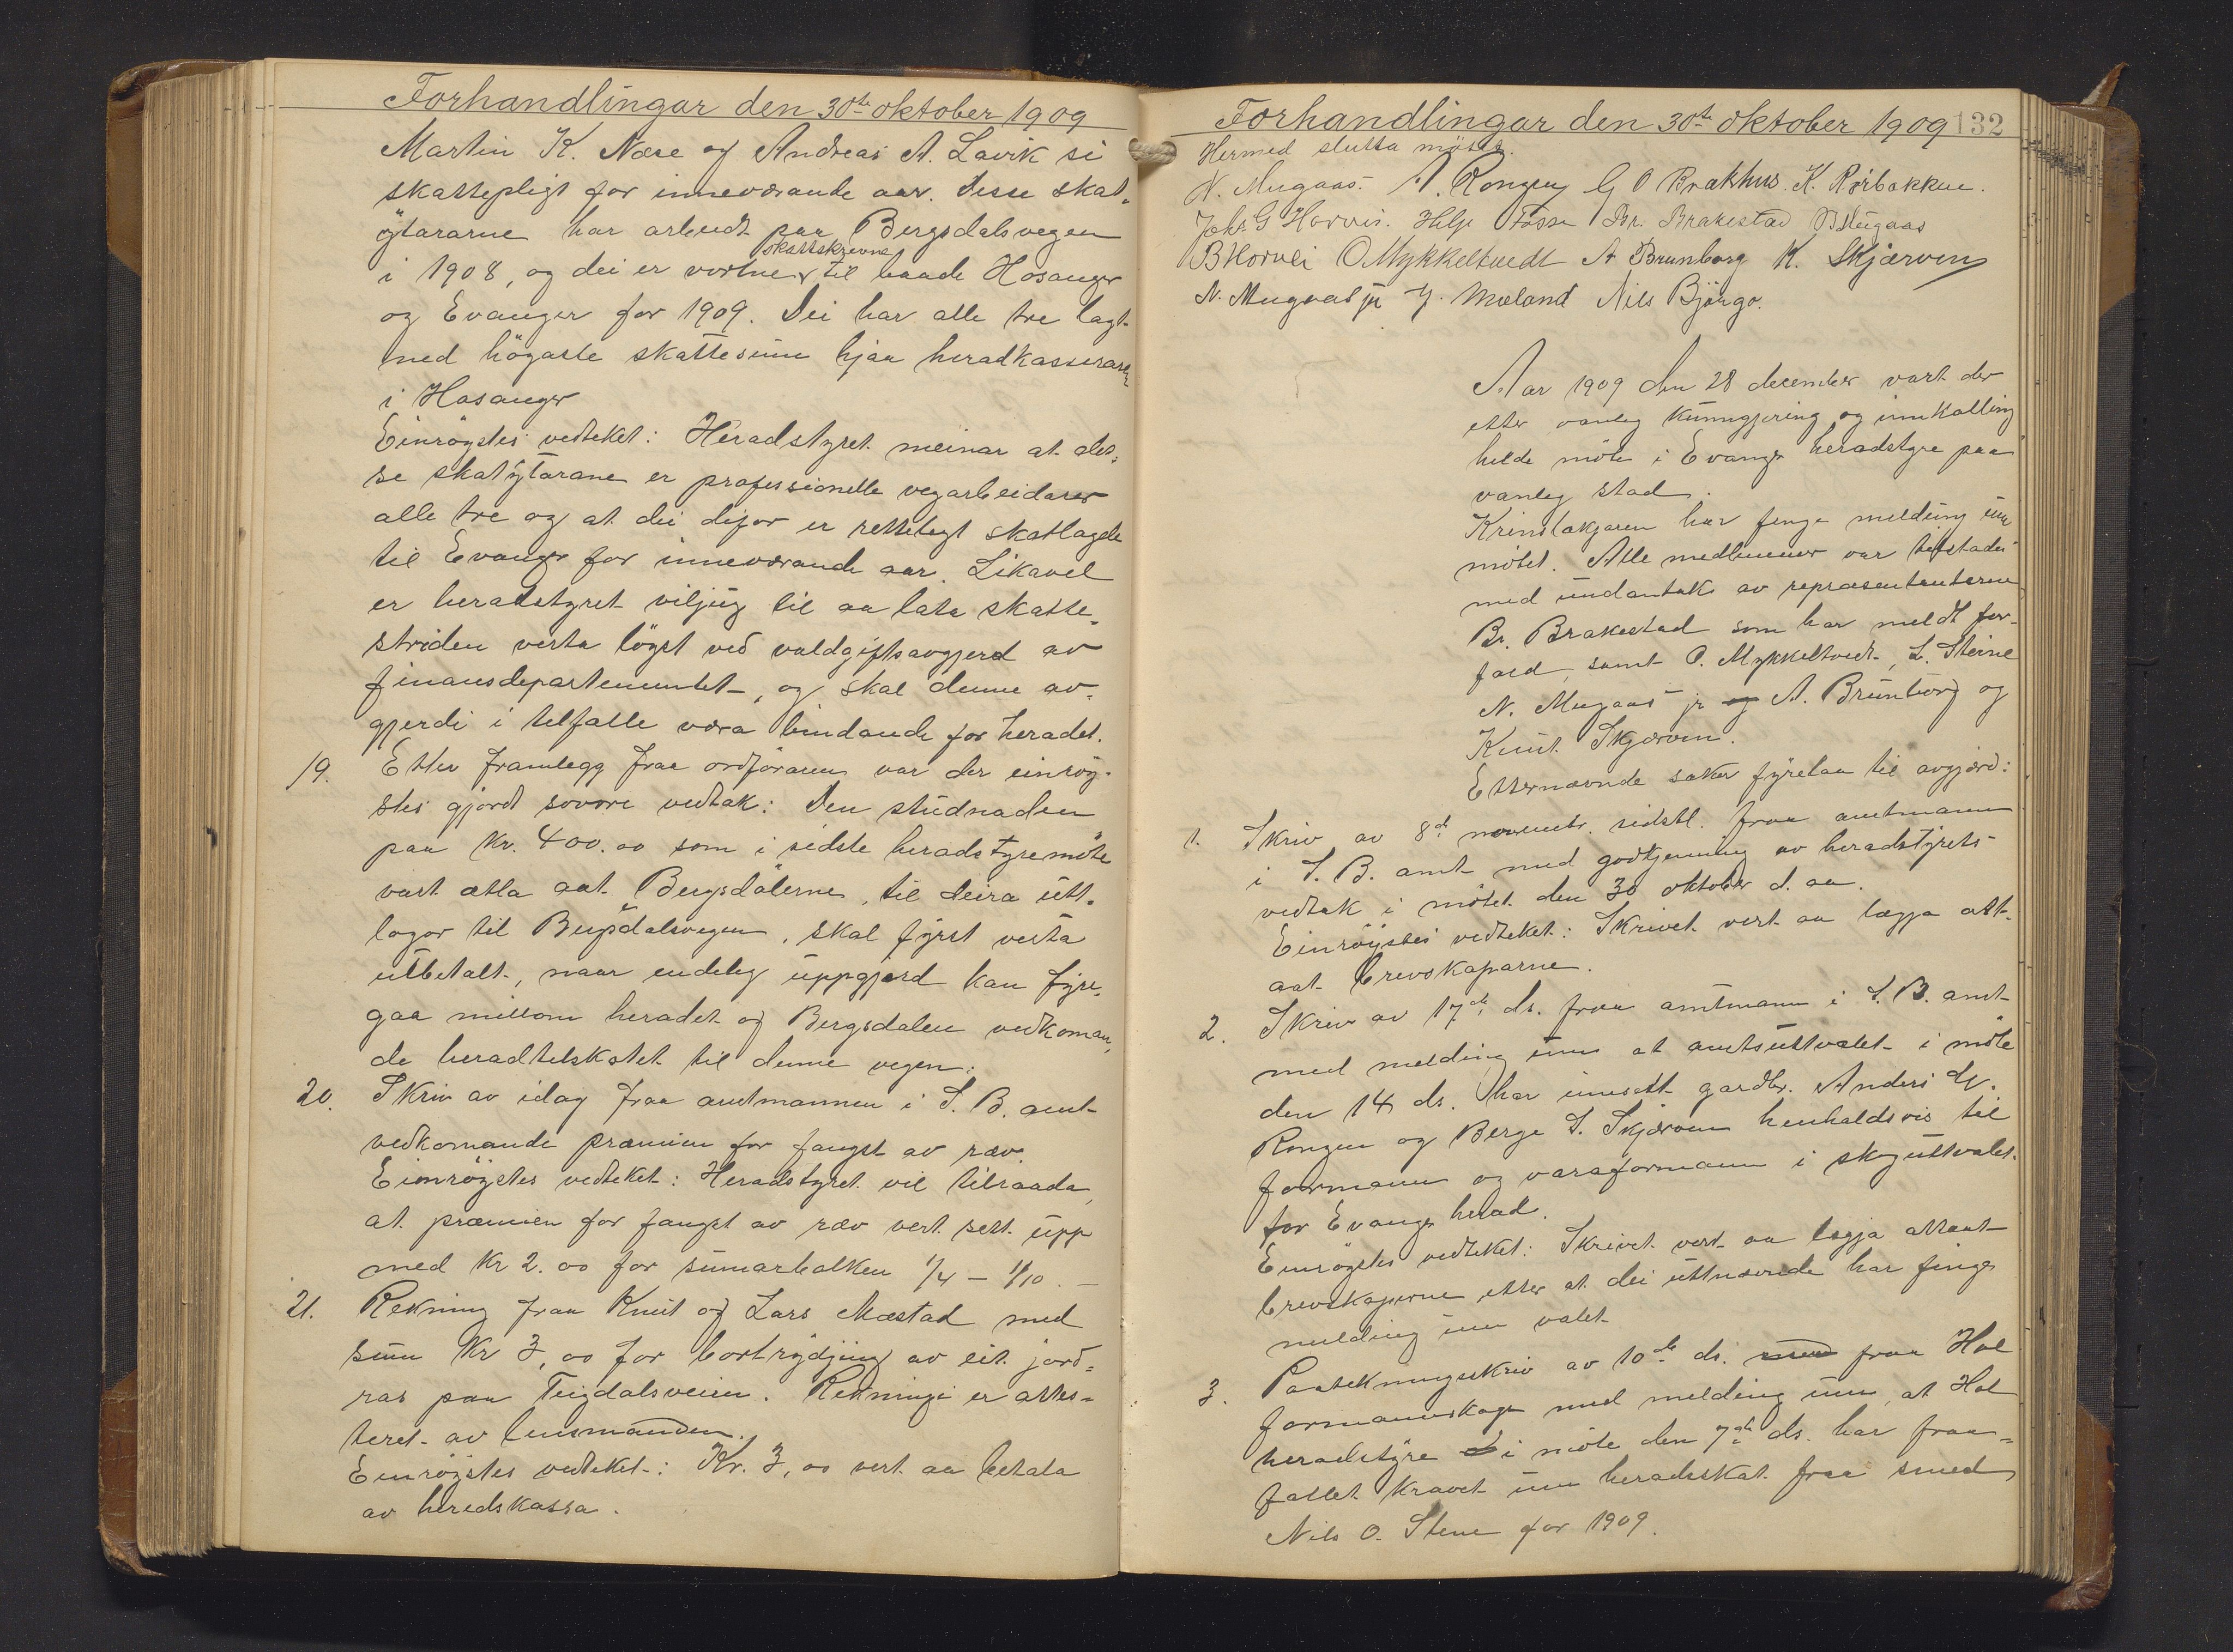 Forhandlingar den 30te oktober 1909
Martin K. Næse og Andreas A. Lavik si
skattepligt for inneværande aar. Desse skat-
öytararne har arbeidt paa Bergsdalsvegen
skattskrevne
i 1908, og dei er vortne til baade Hosanger
og Evanger for 1909. Dei har alle tre lagt
ned högaste skattesum hjaa heradkasseraren
i Hosanger
Einröystes vedteket: Heradstyret meinar at des-
se skatytarane er professionelle vegarbeidarer
alle tre og at dei difor er rettelegt skatlagde
til Evanger for inneværande aar. Likavel
er heradstyret viljug til aa lata skatte-
striden verta löyst ved valdgiftsavgjerd av
finansdepartementet, og skal denne av-
gjerdi i tilfalle væra bindande for heradet.
19. Etter framlegg fraa ordföraren var der einröy-
stes gjordt sovore vedtak: Den studnaden
paa Kr. 400.00 som i sidste heradstyremöte
vart ætla aat Bergsdölerne, til deira utt-
logor til Bergsdalsvegen, skal fyrst verta
utbetalt, naar endeleg uppgjerd kan fyre-
gaa millom heradet og Bergsdalen vedkoman-
de heradtilskotet til denne vegen.
20. Skriv av idag fraa amtmannen i S. B. amt
vedkomande præmien for fangst av ræv.
Einröystes vedteket: Heradstyret vil tilraada,
at præmien for fangst av ræv vert sett upp
med Kr 2.00 for sumarbolken 1/4 – 1/10. –
21. Rekning fraa Knut og Lars Mæstad med
sum Kr 3,00 for bortrydjing av eit jord-
ras paa Teigdalsveien. Rekningi er attes-
teret av lensmanden.
Einröystes vedteket: Kr. 3,00 vert aa betala
av heredskassa.
Forhandlingar den 30te oktober 1909 132
Hermed slutta mötet.
N. Mugaas. A. Rongen G O Brækhus. K. Rörbakken.
Johs G Horvei. Helje Fosse Br. Brakestad B Mugaas
B Horvei O Mykkeltvedt A Brunborg K. Skjærven
N. Mugaas jr J. Mæland Nils Björgo.
Aar 1909 den 28 december vart der
etter vanleg kunngjering og innkalling
helde möte i Evanger heradstyre paa
vanleg stad.
Krinslækjaren har fenge melding um
mötet. Alle medlemmer var tilstades
med undantak av repræsentanterne
Br. Brakestad som har meldt for-
fald, samt O. Mykkeltvedt, L. Steine
N. Mugaas jr og A. Brunborg og
Knut Skjærven.
Etternæmnde saker fyrelaa til avgjærd:
1. Skriv av 8de novembr. sidstl. fraa amtmann
i S. B. amt med godkjenning av heradstyrets
vedtak i mötet den 30 oktober d. aa.
Einröystes vedteket: Skrivet vert aa lægja att-
aat brevskaparne.
2. Skriv av 17de ds. fraa amtmann i S. B. amt
med melding um at amtsuttvalet i möte
den 14 ds. har innsett gardbr. Anders W.
Rongen og Berge S. Skjærven henhaldsvis til
formann og varaformann i skoguttvalet
for Evanger herad.
Einröystes vedteket: Skrivet vert aa legja attaat
brevskaperne, etter at dei uttnævnde har finge
melding um valet
3. Paateknungsskriv av 10de ds. med fraa Hol
formannskap med melding um, at Hol
heradstyre i möte den 7de ds. har fraa-
fallet kravet um heradsskat fraa smed
Nils O. Stene for 1909.